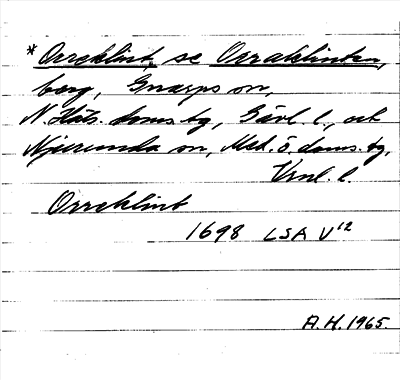 * Orreklint, se Orraklinten,
berg, Gnarps sn,
N. Häls. doms. bg, Gävl. l., och
Njurunda sn, Med. ö. doms. bg,
Vnl. l.
Orreklint
1698 LSA V12
A.H. 1965.